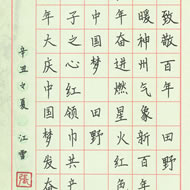 致敬百年
田野
暖神州气象新百年
年奋进燃星火红色
中国梦
田野
子之心红领巾共产
年大庆中国梦发
辛丑之夏 江雪